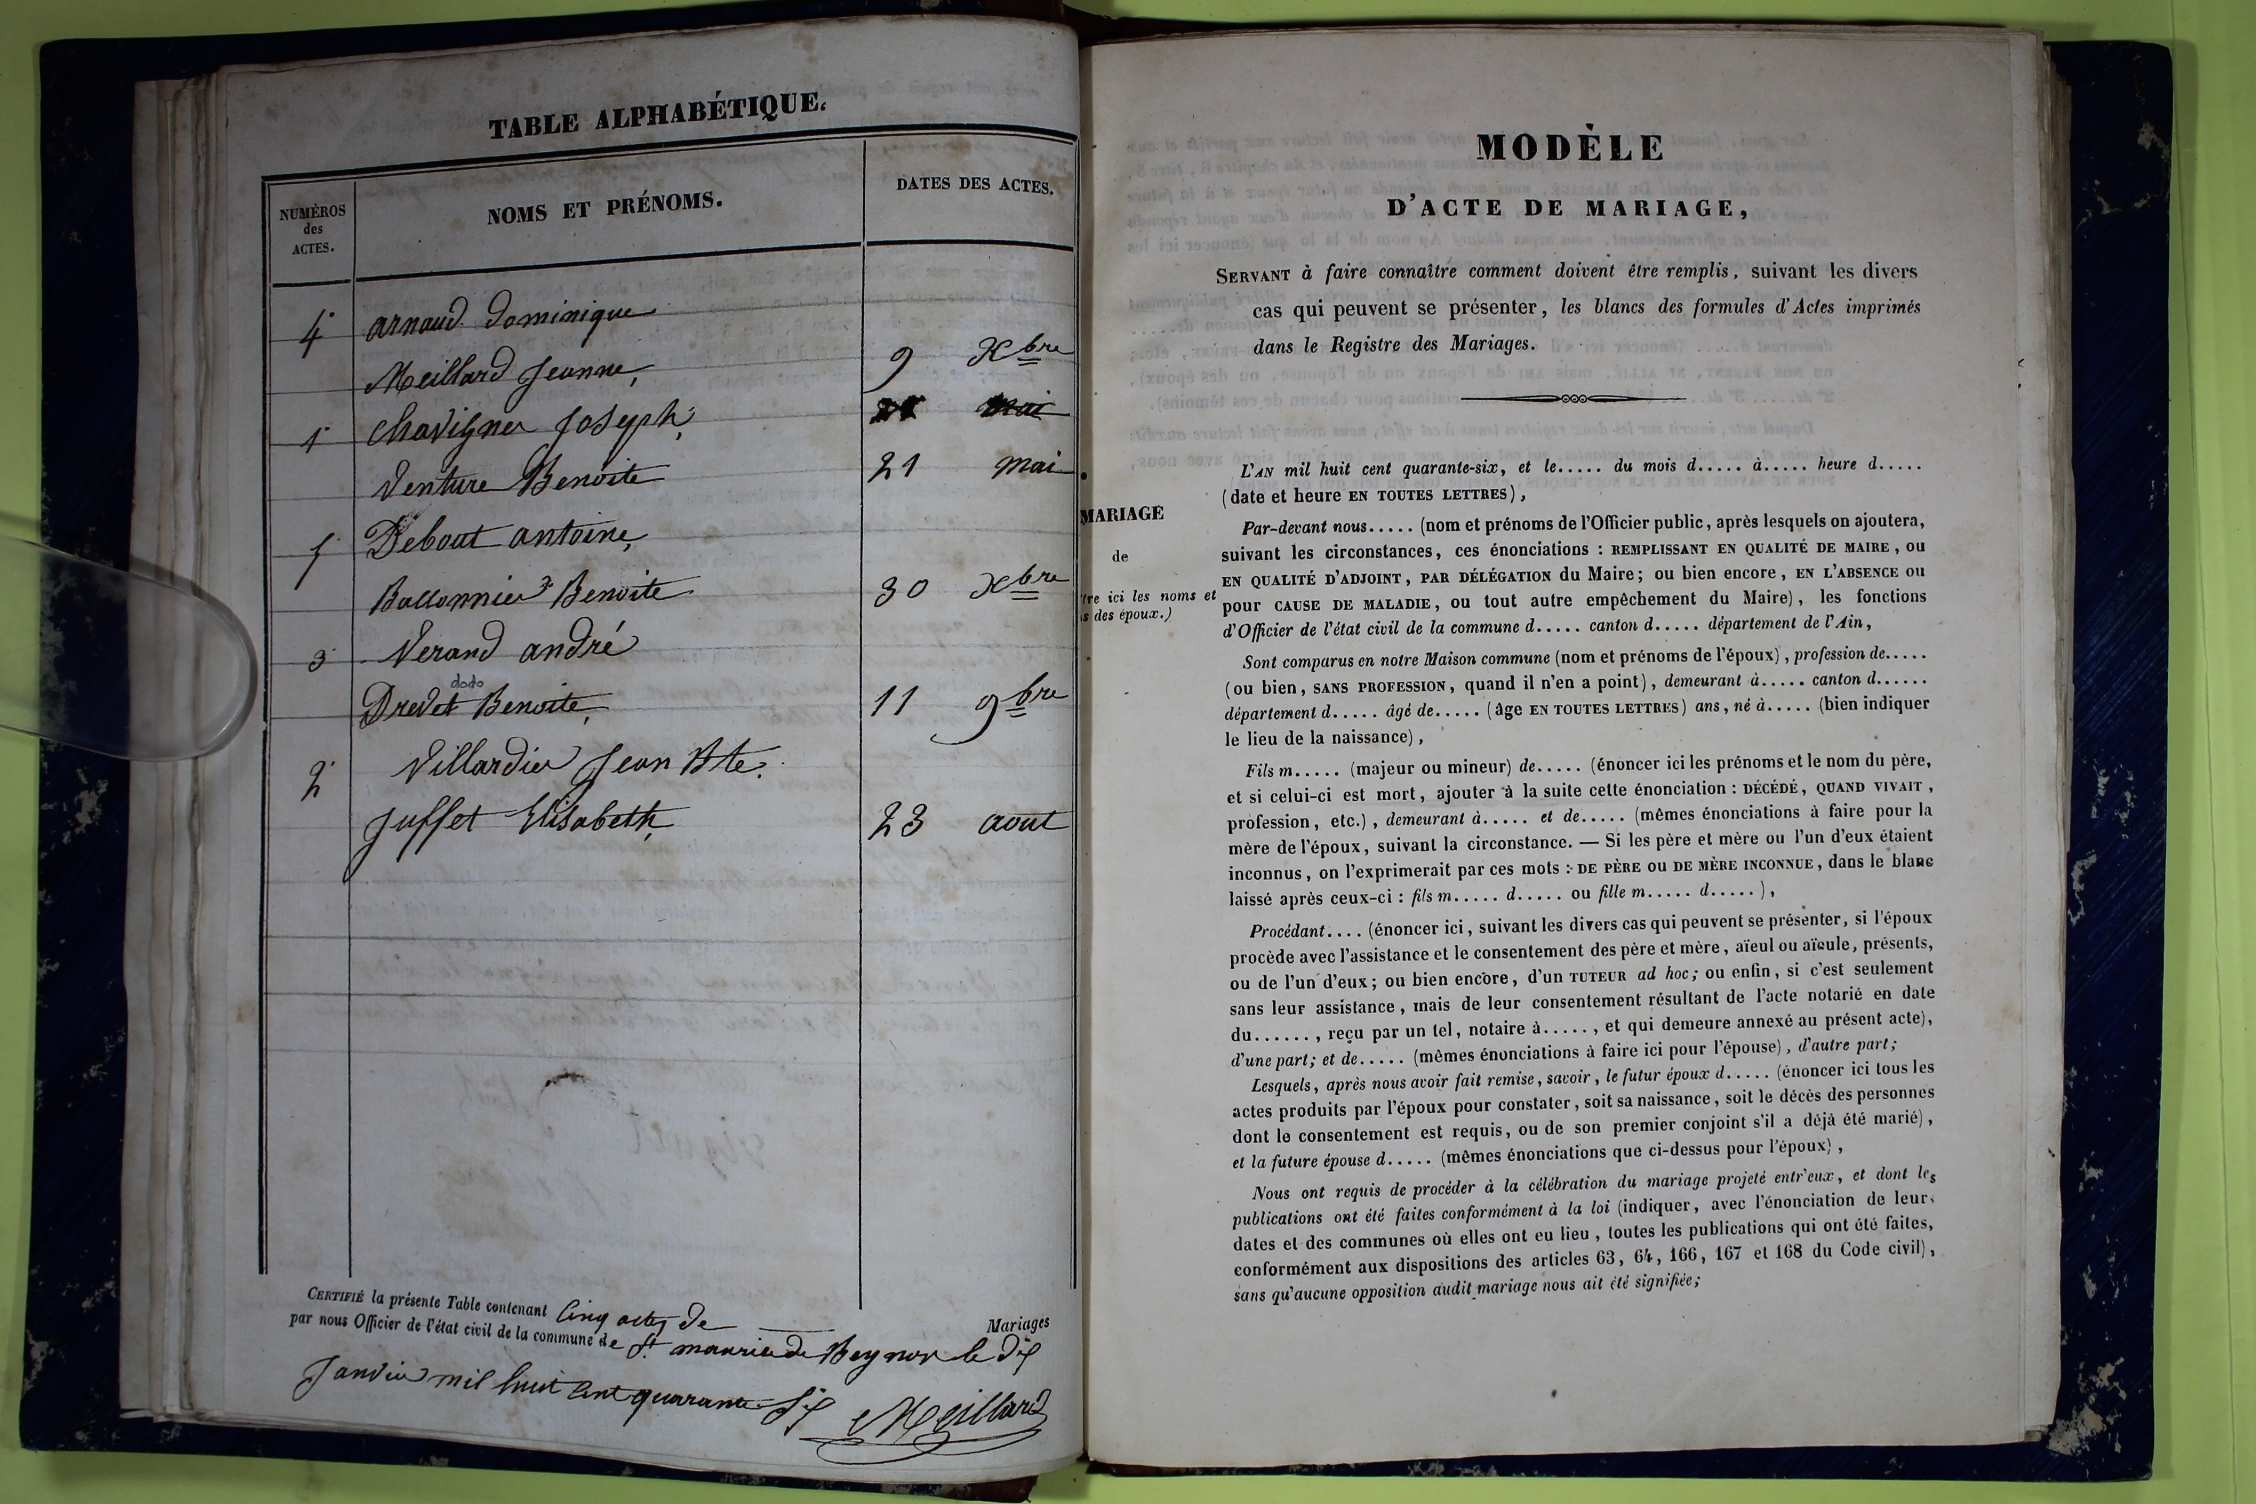 TABLE ALPHABÉTIQUE.
NUMÈROS des ACTES.
NOMS ET PRÉNOMS.
DATES DES ACTES.
4 arnaud dominique
Meillard Jeanne, 9 Xbre
1 Chavigner Joseph, mai
Venture Benoite 21 mai
5 Debout antoine,
Benoite 30 Xbre
3 Verand andré
dodo
Drevet Benoite, 11 9bre
2 Villardier Jean Bte.
Juffet Elisabeth, 23 aout
CERTIFIÉ la présente Table contenant cinq actes de Mariages
par nous Officier de l'état civil de la commune de St maurice de Beynor le dix
Janvier mil huit cent quarante six Meillard
MODÈLE
D'ACTE DE MARIAGE,
SERVANT à faire connaître comment doivent être remplis, suivant les divers
cas qui peuvent se présenter, les blancs des formules d'Actes imprimés
dans le Registre des Mariages.
MARIAGE
de
tre ici les noms et
s des époux.)
L'AN mil huit cent quarante-six, et le..... du mois d..... à..... heure d.....
(date et heure EN TOUTES LETTRES),
Par-devant nous..... (nom et prénoms de l'Officier public, après lesquels on ajoutera,
suivant les circonstances, ces énonciations : REMPLISSANT EN QUALITÉ DE MAIRE, ou
EN QUALITÉ D'ADJOINT, PAR DÉLÉGATION du Maire; ou bien encore, EN L'ABSENCE ou
pour CAUSE DE MALADIE, ou tout autre empêchement du Maire), les fonctions
d'Officier de l'état civil de la commune d..... canton d..... département de l'Ain,
Sont comparus en notre Maison commune (nom et prénoms de l'époux), profession de.....
(ou bien, SANS PROFESSION, quand il n'en a point), demeurant à..... canton d......
département d..... âgé de..... (âge EN TOUTES LETTRES) ans, né à..... (bien indiquer
le lieu de la naissance),
Fils m..... (majeur ou mineur) de..... (énoncer ici les prénoms et le nom du père,
et si celui-ci est mort, ajouter à la suite cette énonciation : DÉCÉDÉ, QUAND VIVAIT,
profession, etc.), demeurant à..... et de..... (mêmes énonciations à faire pour la
mère de l'époux, suivant la circonstance. — Si les père et mère ou l'un d'eux étaient
inconnus, on l'exprimerait par ces mots : DE PÈRE OU DE MÈRE INCONNUE, dans le blanc
laissé après ceux-ci : fils m..... d..... ou fille m..... d.....),
Procédant.... (énoncer ici, suivant les divers cas qui peuvent se présenter, si l'époux
procède avec l'assistance et le consentement des père et mère, aïeul ou aïeule, présents,
ou de l'un d'eux; ou bien encore, d'un TUTEUR ad hoc; ou enfin, si c'est seulement
sans leur assistance, mais de leur consentement résultant de l'acte notarié en date
du......, reçu par un tel, notaire à....., et qui demeure annexé au présent acte),
d'une part; et de..... (mêmes énonciations à faire ici pour l'épouse), d'autre part;
Lesquels, après nous avoir fait remise, savoir, le futur époux d..... (énoncer ici tous les
actes produits par l'époux pour constater, soit sa naissance, soit le décès des personnes
dont le consentement est requis, ou de son premier conjoint s'il a déjà été marié),
et la future épouse d..... (mêmes énonciations que ci-dessus pour l'époux),
Nous ont requis de procéder à la célébration du mariage projeté entr'eux, et dont les
publications ont été faites conformément à la loi (indiquer, avec l'énonciation de leurs
dates et des communes où elles ont eu lieu, toutes les publications qui ont été faites,
conformément aux dispositions des articles 63, 64, 166, 167 et 168 du Code civil),
sans qu'aucune opposition audit mariage nous ait été signifiée;